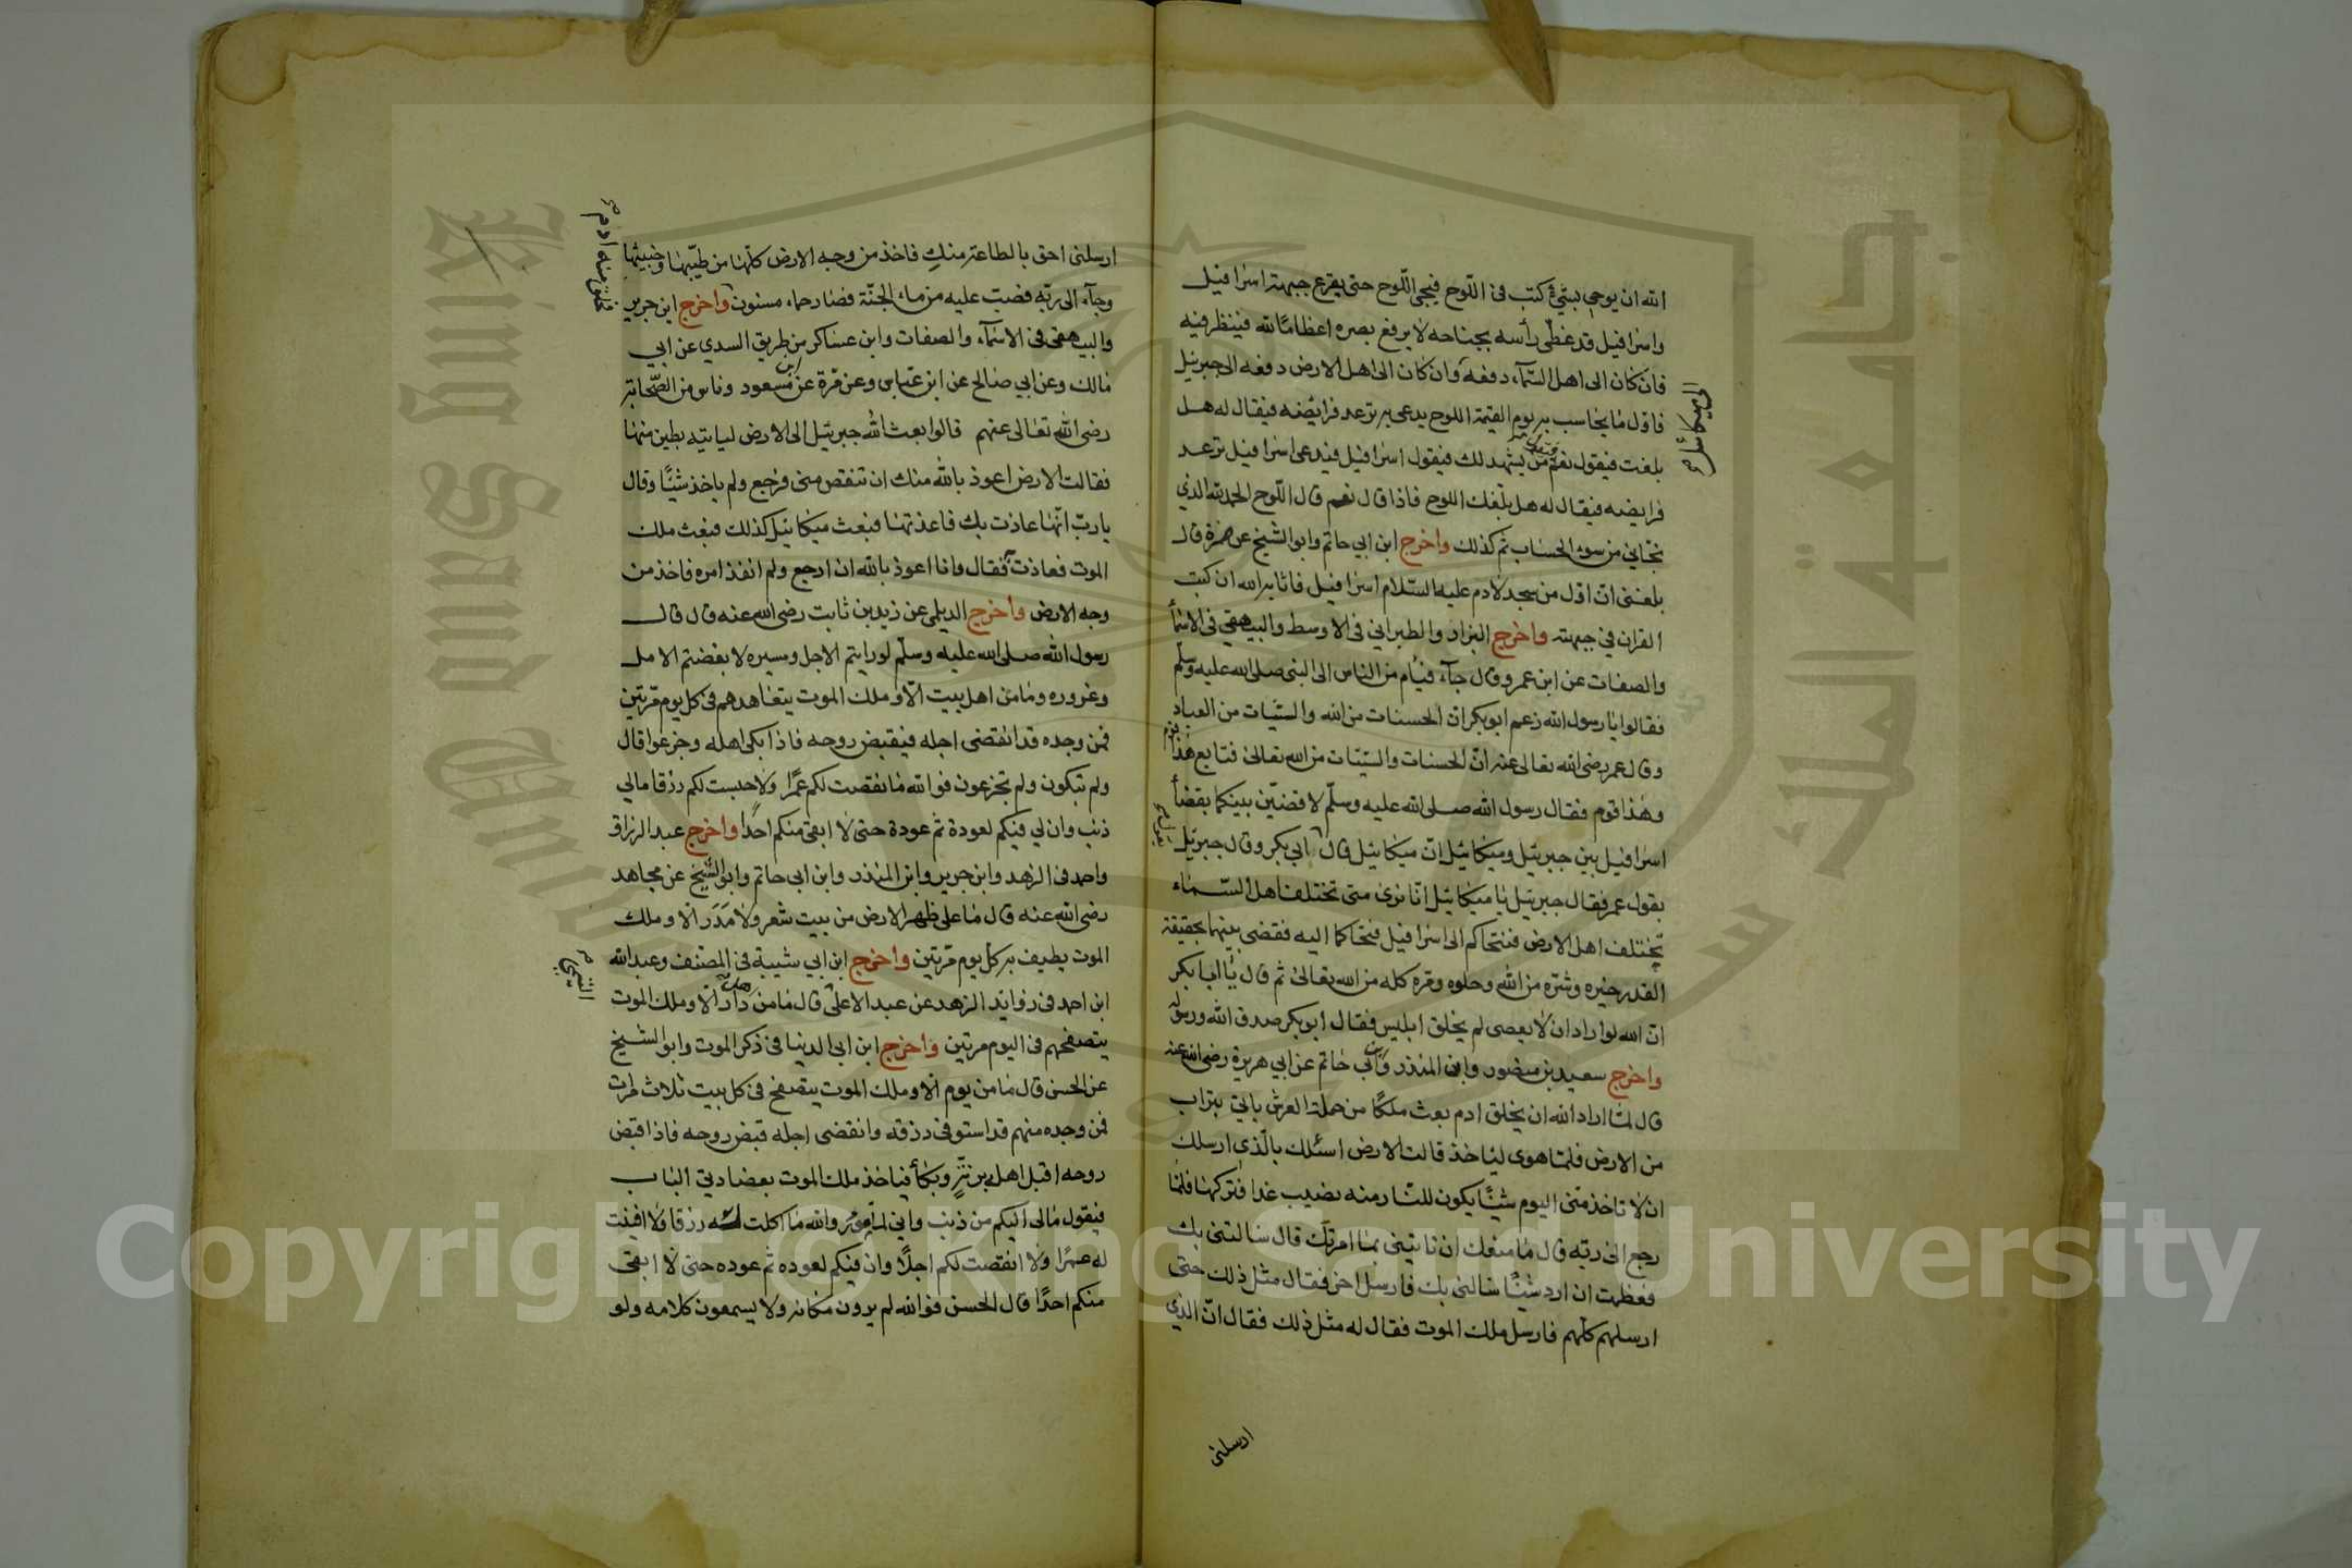 الله ان يوحي بشئ كتب في اللوح فيجئ اللوح حتى يقرع جبهة اسرافيل
واسرافيل قد غطى رأسه بجناحه لا يرفع بصره اعظاما لله فينظر فيه
فان كان الى اهل السمآء دفعه وان كان الى اهل الارض دفعه الى جبريل
الى ميكائيل
فاول ما يحاسب به يوم القيمة اللوح يدعى به ترعد فرائضه فيقال له هل
بلغت فيقول نعم فيقال من يشهد لك فيقول اسرافيل فيدعى اسرافيل ترعد
فرايضه فيقال له هل بلغك اللوح فاذا قال نعم قال اللوح الحمد لله الذي
نجاني من سوء الحساب ثم كذلك واخرج ابن ابي حاتم وابو الشيخ عن ضمرة قال
بلغنى ان اول من سجد لادم عليه السلام اسرافيل فاثابه الله ان كتب
القران في جبهته واخرج البزار والطبراني في الاوسط والبيهقي في الاسمأ
والصفات عن ابن عمرو قال جآء فيام من الناس الى النبى صلى الله عليه وسلم
فقالوا يا رسول الله زعم ابو بكر ان الحسنات من الله والسيئات من العباد
وقال عمر رضى الله تعالى عنه ان الحسنات والسيئات من الله تعالى فتابع هذا قوم
وهذا قوم فقال رسول الله صلى الله عليه وسلم لاقضين بينكما بقضأ
اسرافيل بين جبريئل وميكائيل ان ميكائيل قال بقول ابى بكر وقال جبريئل
بقول عمر فقال جبريئل يا ميكائيل انا نرى متى تختلف اهل السماء
تختلف اهل الارض فنتحاكم الى اسرافيل فتحاكما اليه فقضى بينهما بحقيقة
القدر خيره وشره من الله وحلوه ومره كله من الله تعالى ثم قال يا ابا بكر
ان الله لو اراد ان لا يعصى لم يخلق ابليس فقال ابو بكر صدق الله ورسوله
واخرج سعيد بن منصور وابن المنذر وابن ابي حاتم عن ابي هريرة رضى الله عنه
قال لما اراد الله ان يخلق ادم بعث ملكا من حملة العرش ياتي بتراب
من الارض فلما هوى لياخذ قالت الارض اسئلك بالذي ارسلك
ان لا تاخذ منى اليوم شيئا يكون للنار منه نصيب غدا فتركها فلما
رجع الى ربه قال ما منعك ان تاتينى بما امرتك قال سالتنى بك
فعظمت ان ارد شيئا سالنى بك فارسل اخر فقال مثل ذلك حتى
ارسلهم كلهم فارسل ملك الموت فقال له مثل ذلك فقال ان الذي
ارسلنى
ارسلنى احق بالطاعة منك فاخذ من وجه الارض كلها من طيبها وخبيثها
وجآء الى ربه فصب عليه من ماء الجنة فصار حماء مسنون واخرج ابن جرير
فخلق منه ادم
والبيهقى في الاسمآء والصفات وابن عساكر من طريق السدي عن ابي
مالك وعن ابي صالح عن ابن عباس وعن مرة عن ابن مسعود وناس من الصحابة
رضى الله تعالى عنهم قالوا بعث الله جبريئل الى الارض لياتيه بطين منها
فقالت الارض اعوذ بالله منك ان تنقص منى فرجع ولم ياخذ شيئا وقال
يا رب انها عاذت بك فاعذتها فبعث ميكائيل كذلك فبعث ملك
الموت فعاذت فقال وانا اعوذ بالله ان ارجع ولم انفذ امره فاخذ من
وجه الارض واخرج الديلمي عن زيد بن ثابت رضى الله عنه قال قال
رسول الله صلى الله عليه وسلم لو رايتم الاجل ومسيره لا بغضتم الامل
وغروره وما من اهل بيت الا وملك الموت يتعاهدهم في كل يوم مرتين
فمن وجده قد انقضى اجله فيقبض روحه فاذا بكى اهله وجزعوا قال
ولم تبكون ولم تجزعون فوالله ما نقصت لكم عمرا ولا حبست لكم رزقا مالي
ذنب وان لي فيكم لعودة ثم عودة حتى لا ابقى منكم احدا واخرج عبد الرزاق
واحمد في الزهد وابن جرير وابن المنذر وابن ابى حاتم وابو الشيخ عن مجاهد
رضى الله عنه قال ما على ظهر الارض من بيت شعر ولا مدر الا وملك
الموت يطيف به كل يوم مرتين واخرج ابن ابي شيبة في المصنف وعبد الله
ابن احمد في زوايد الزهد عن عبد الاعلى قال ما من اهل دار الا وملك الموت
التيمي
يتصفحهم في اليوم مرتين واخرج ابن ابي الدنيا في ذكر الموت وابو الشيخ
عن الحسن قال ما من يوم الا وملك الموت يتصفح في كل بيت ثلاث مرات
فمن وجده منهم قد استوفى رزقه وانقضى اجله قبض روحه فاذا قبض
روحه اقبل اهله برنة وبكأ فياخذ ملك الموت بعضادتي الباب
فيقول مالي اليكم من ذنب واني لمأمور والله ما اكلت له رزقا ولا افنيت
له عمرا ولا انقصت لكم اجلا وان فيكم لعوده ثم عوده حتى لا ابقى
منكم احدا قال الحسن فوالله لم يرون مكانه ولا يسمعون كلامه ولو
Copyright © King Saud University
King Saud University
جامعة الملك سعود